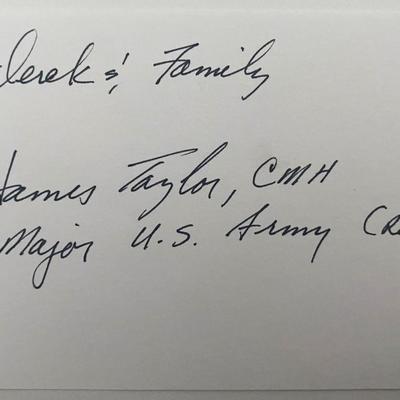 Derek &, Family
James Taylor, CMH
Major U.S. Army (Re